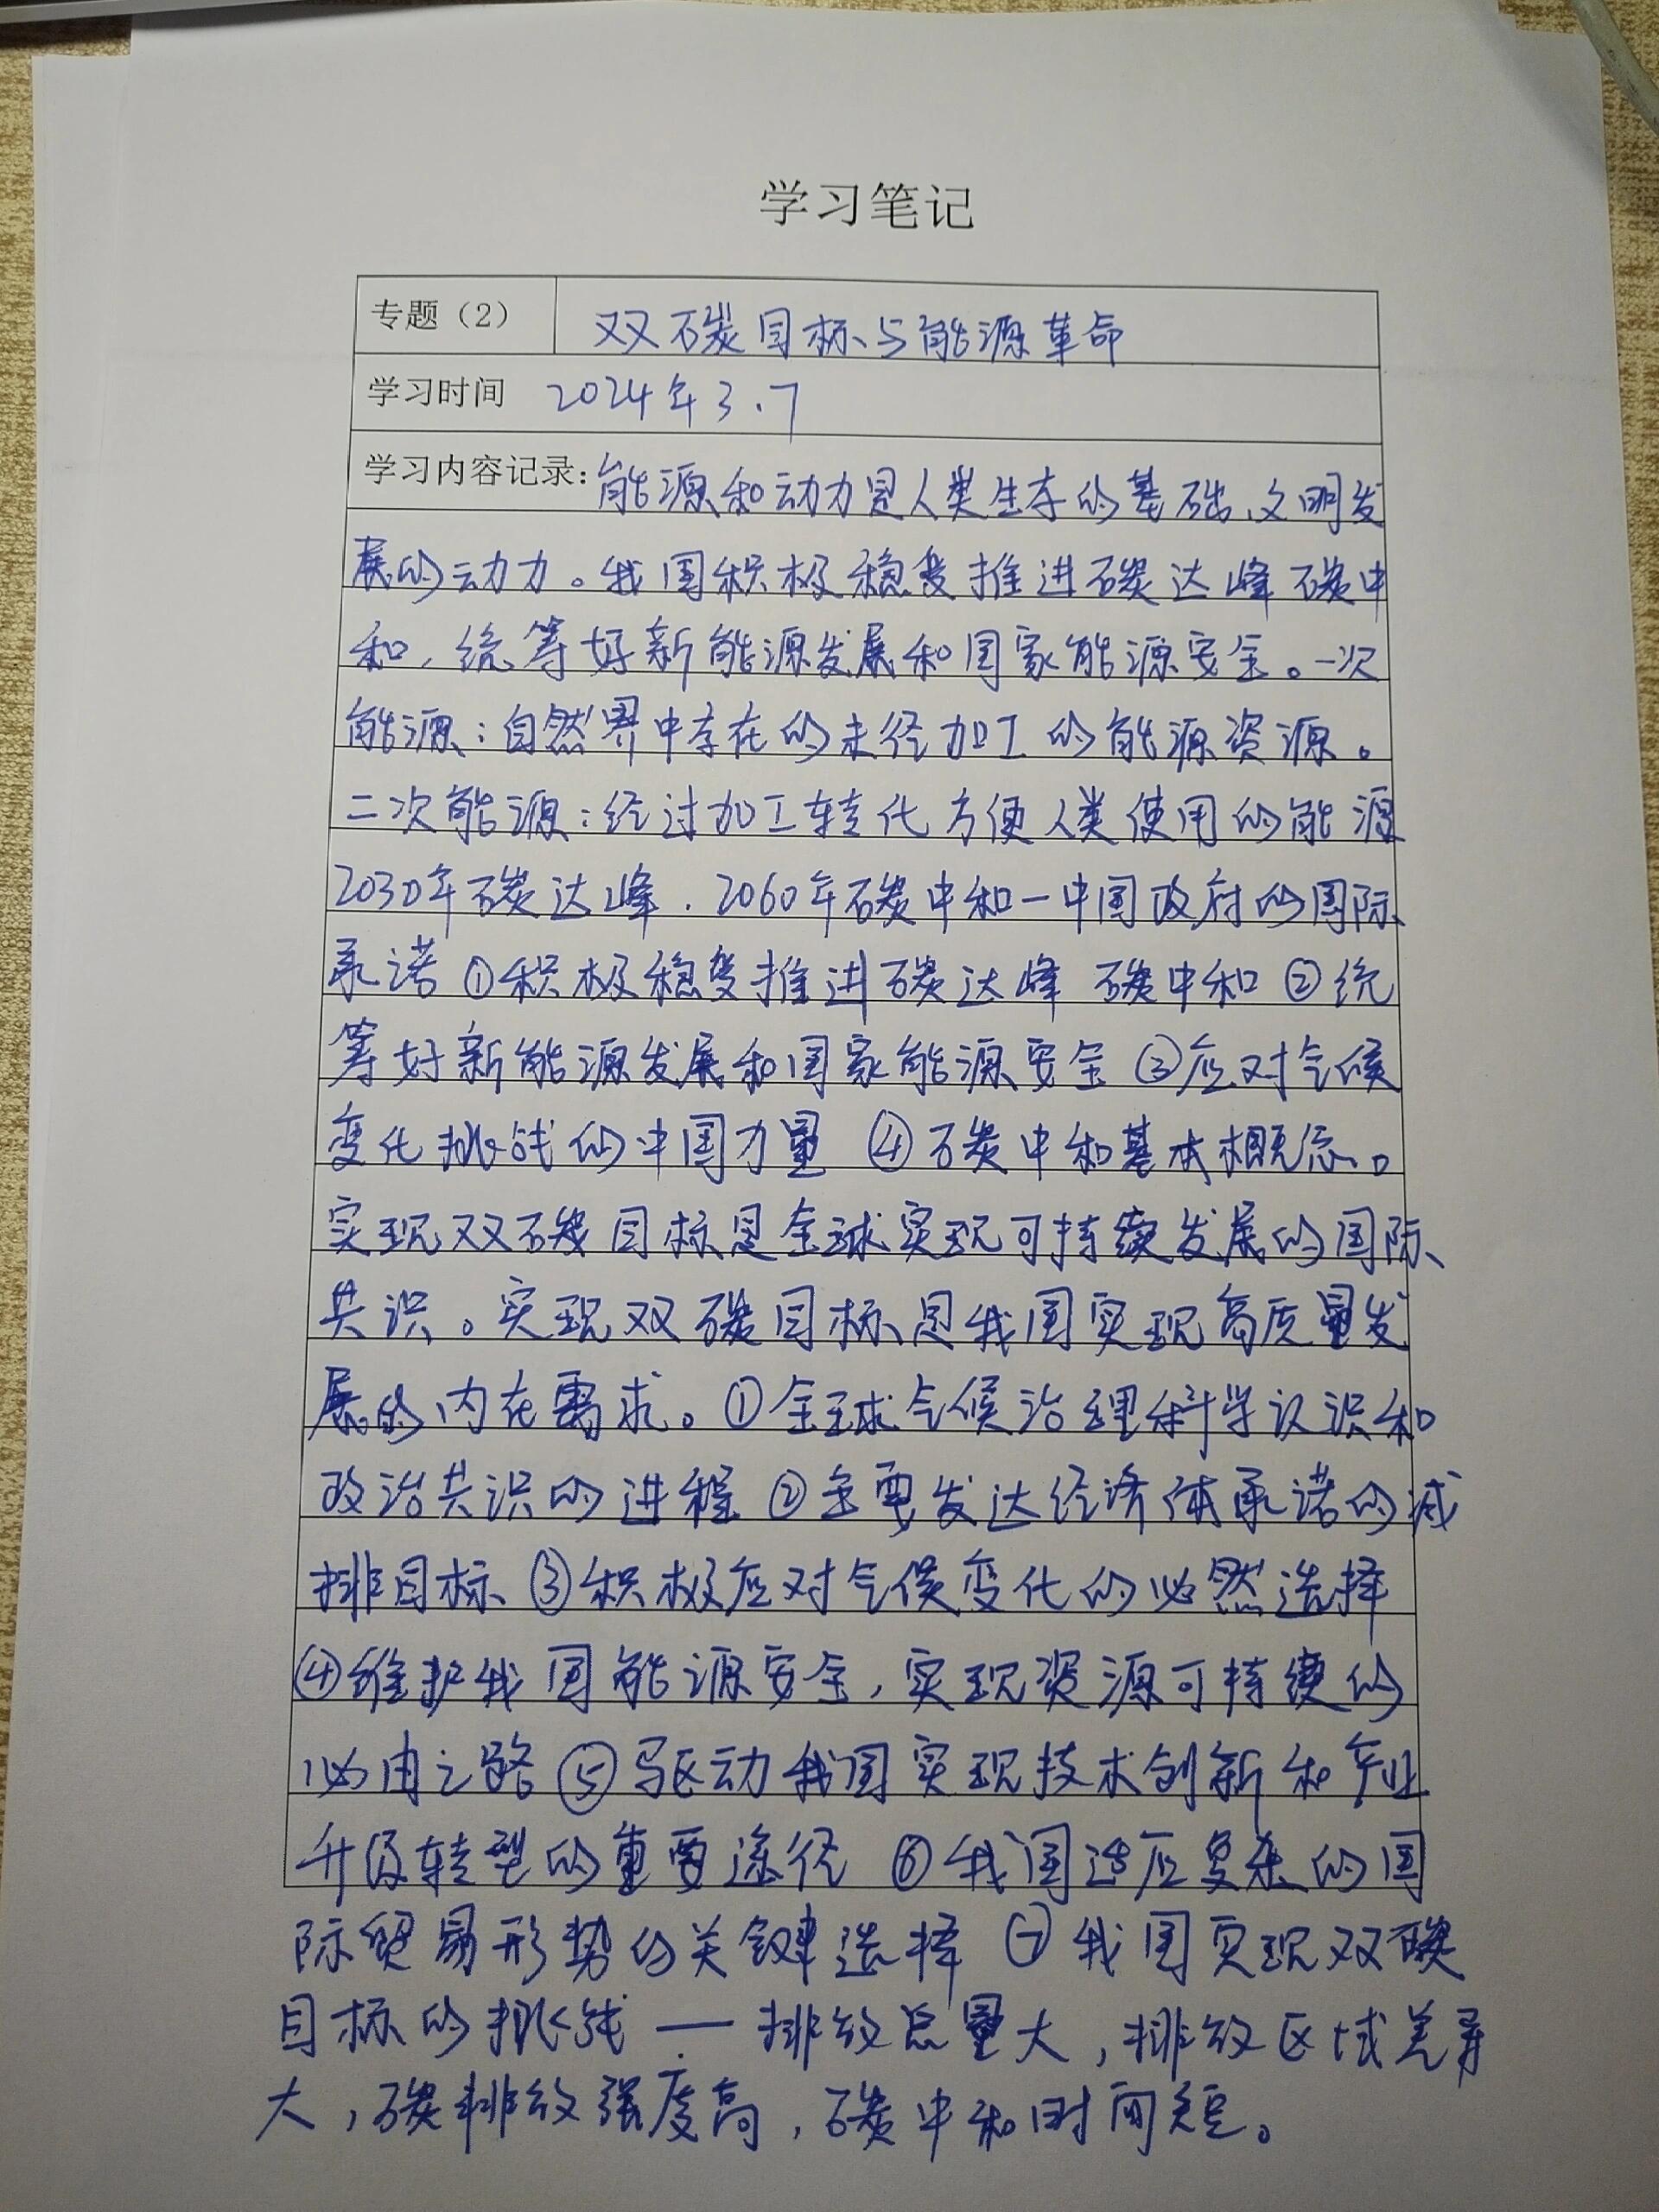 学习笔记
专题（2） 双碳目标与能源革命
学习时间 2024年3.7
学习内容记录：能源和动力是人类生存的基础、文明发
展的动力。我国积极稳妥推进碳达峰碳中
和，统筹好新能源发展和国家能源安全。一次
能源：自然界中存在的未经加工的能源资源。
二次能源：经过加工转化方便人类使用的能源
2030年碳达峰．2060年碳中和—中国政府的国际
承诺 ①积极稳妥推进碳达峰 碳中和 ②统
筹好新能源发展和国家能源安全 ③应对气候
变化挑战的中国力量 ④碳中和基本概念。
实现双碳目标是全球实现可持续发展的国际
共识。实现双碳目标是我国实现高质量发
展的内在需求。①全球气候治理科学认识和
政治共识的进程 ②主要发达经济体承诺的减
排目标 ③积极应对气候变化的必然选择
④维护我国能源安全，实现资源可持续的
必由之路 ⑤驱动我国实现技术创新和产业
升级转型的重要途径 ⑥我国适应复杂的国
际贸易形势的关键选择 ⑦我国实现双碳
目标的挑战——排放总量大，排放区域差异
大，碳排放强度高，碳中和时间短。